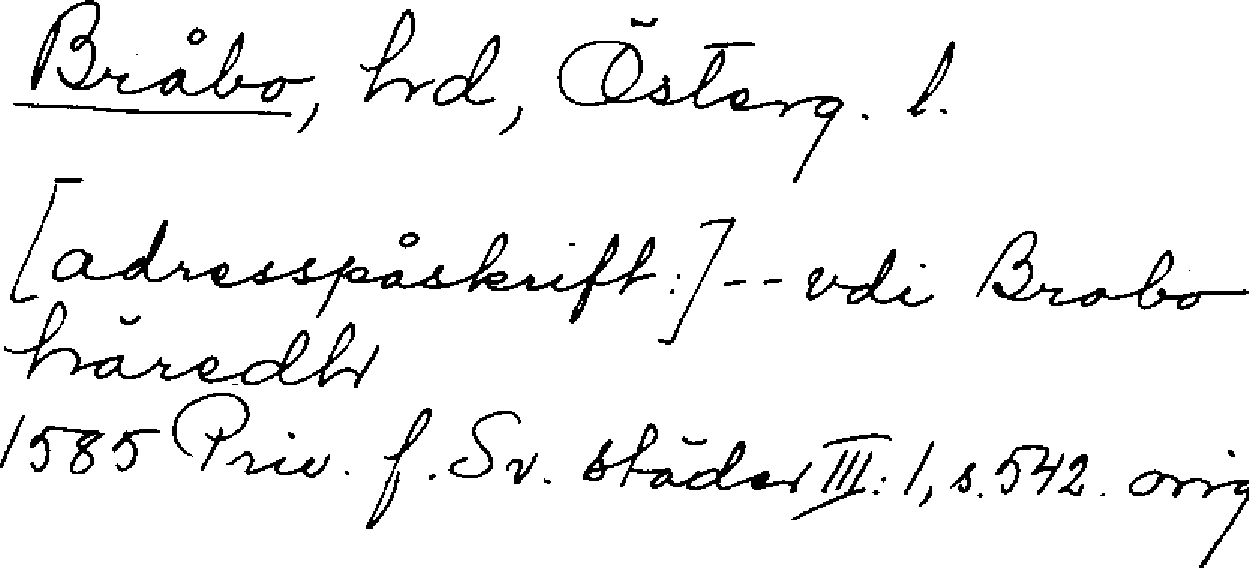 Bråbo, hrd, Österg. l.
[adresspåskrift:]-- vdi Brabo
häredh
1585 Priv. f. Sv. städer III: 1, s. 542. orig